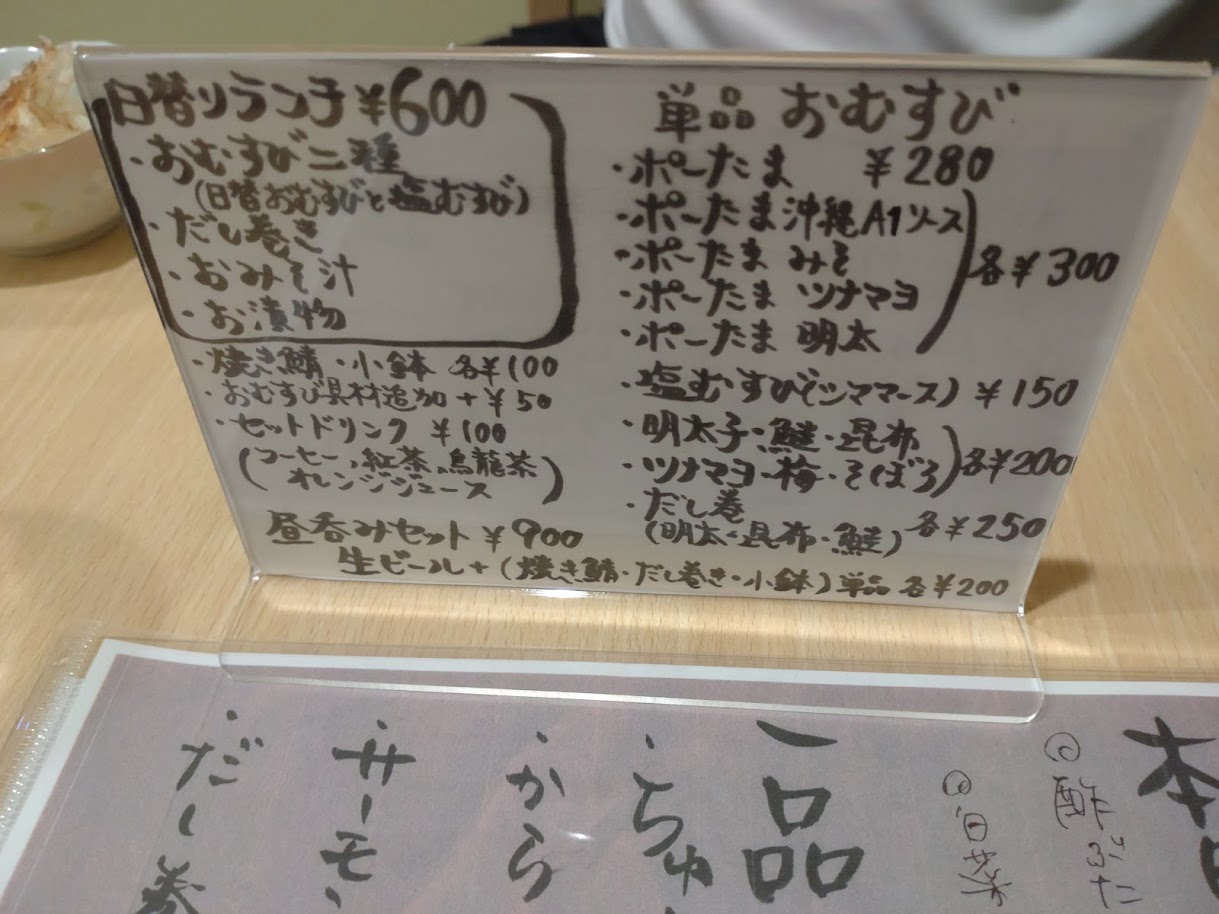 日替りランチ ¥600
・おむすび二種
(日替おむすびと塩むすび)
・だし巻き
・おみそ汁
・お漬物
・焼き鯖・小鉢 各¥100
・おむすび具材追加 +¥50
・セットドリンク ¥100
(コーヒー、紅茶、烏龍茶
オレンジジュース)
昼呑みセット ¥900
生ビール+(焼き鯖・だし巻き・小鉢)単品 各¥200
単品 おむすび
・ポーたま ¥280
・ポーたま 沖縄A1ソース
・ポーたま みそ
・ポーたま ツナマヨ
・ポーたま 明太
各¥300
・塩むすび(シママース) ¥150
・明太子・鮭・昆布
・ツナマヨ・梅・そぼろ
各¥200
・だし巻
(明太・昆布・鮭) 各¥250
本
酢ぶた
一品
・ちゅ
・から
・サーモン
・だし巻